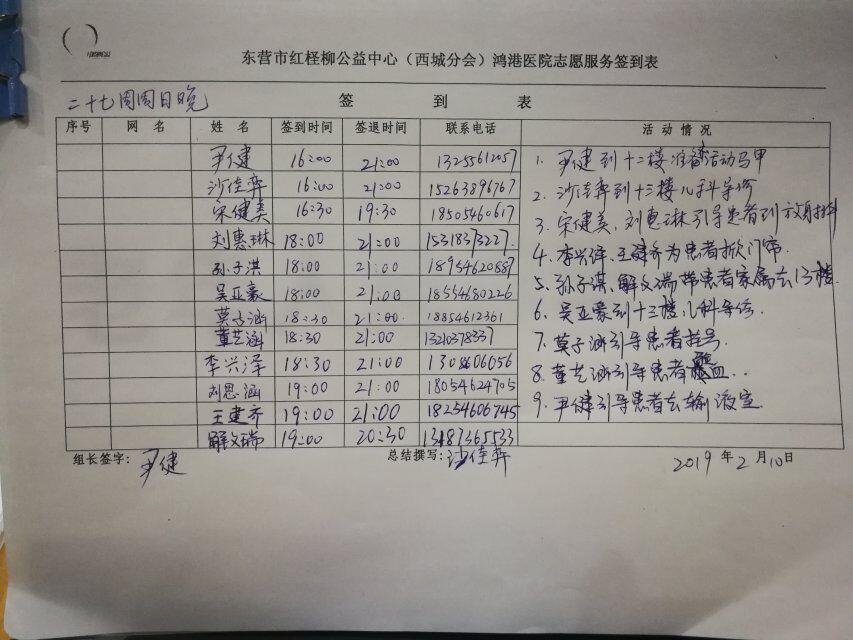 东营市红柽柳公益中心（西城分会）鸿港医院志愿服务签到表
二十七周周日晚 签 到 表
序号 网 名 姓 名 签到时间 签退时间 联系电话 活 动 情 况
尹健 16:00 21:00 13255612057
沙佳弈 16:00 21:00 15263896767
宋健美 16:30 19:30 18505460617
刘惠琳 18:00 21:00 15318373227
孙子淇 18:00 21:00 18954620887
吴亚豪 18:00 21:00 18554680226
莫子涵 18:30 21:00 18854612361
董芝涵 18:30 21:00 13210378337
李兴泽 18:30 21:00 1308606056
刘恩涵 19:00 21:00 18054624705
王建齐 19:00 21:00 18254606745
解文瑞 19:00 20:30 13487365533
1. 尹健到十二楼准备活动马甲
2. 沙佳弈到十三楼儿科导诊
3. 宋健美、刘惠琳引导患者到放射科
4. 李兴泽、王建齐为患者掀门帘.
5. 孙子淇、解文瑞带患者家属去13楼.
6. 吴亚豪到十三楼儿科导诊.
7. 莫子涵引导患者挂号
8. 董芝涵引导患者 血..
9. 尹健引导患者去输液室
组长签字：尹健 总结撰写：沙佳弈 2019 年 2 月 10 日